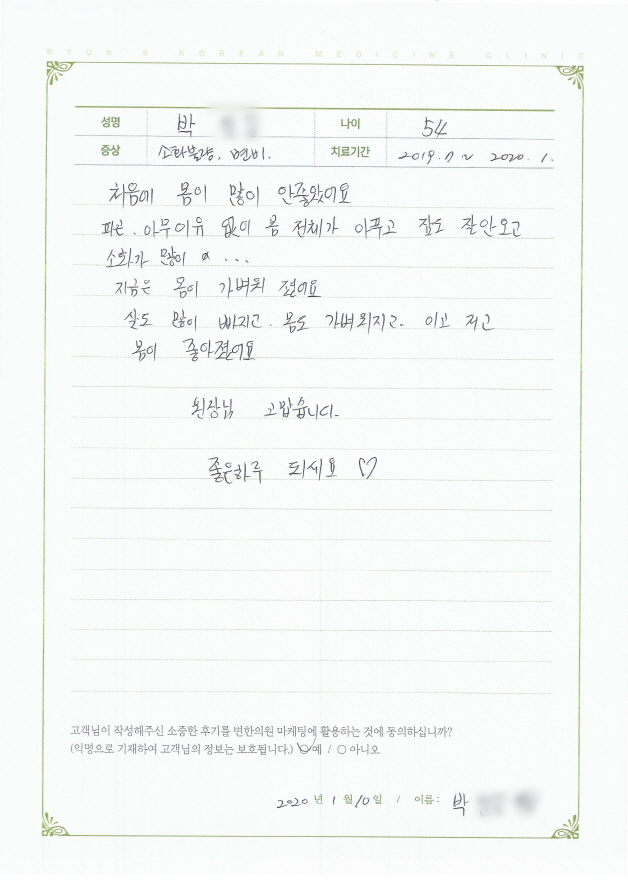 BYUN'S KOREAN MEDICINE CLINIC
성명 박 나이 54
증상 소화불량. 변비. 치료기간 2019.7 ~ 2020. 1.
처음에 몸이 많이 안좋왔어요
아무이유 없이 몸 전체가 아푸고 잠도 잘안오고
소화가 많이 ...
지금은 몸이 가벼워 졌어요
살도 많이 빠지고. 몸도 가벼워지고.
몸이 좋아졌어요
원장님 고맙습니다.
좋은하루 되세요 ♡
고객님이 작성해주신 소중한 후기를 변한의원 마케팅에 활용하는 것에 동의하십니까?
(익명으로 기재하여 고객님의 정보는 보호됩니다.) ○예 / ○ 아니오
2020 년 1 월 10 일 / 이름 : 박